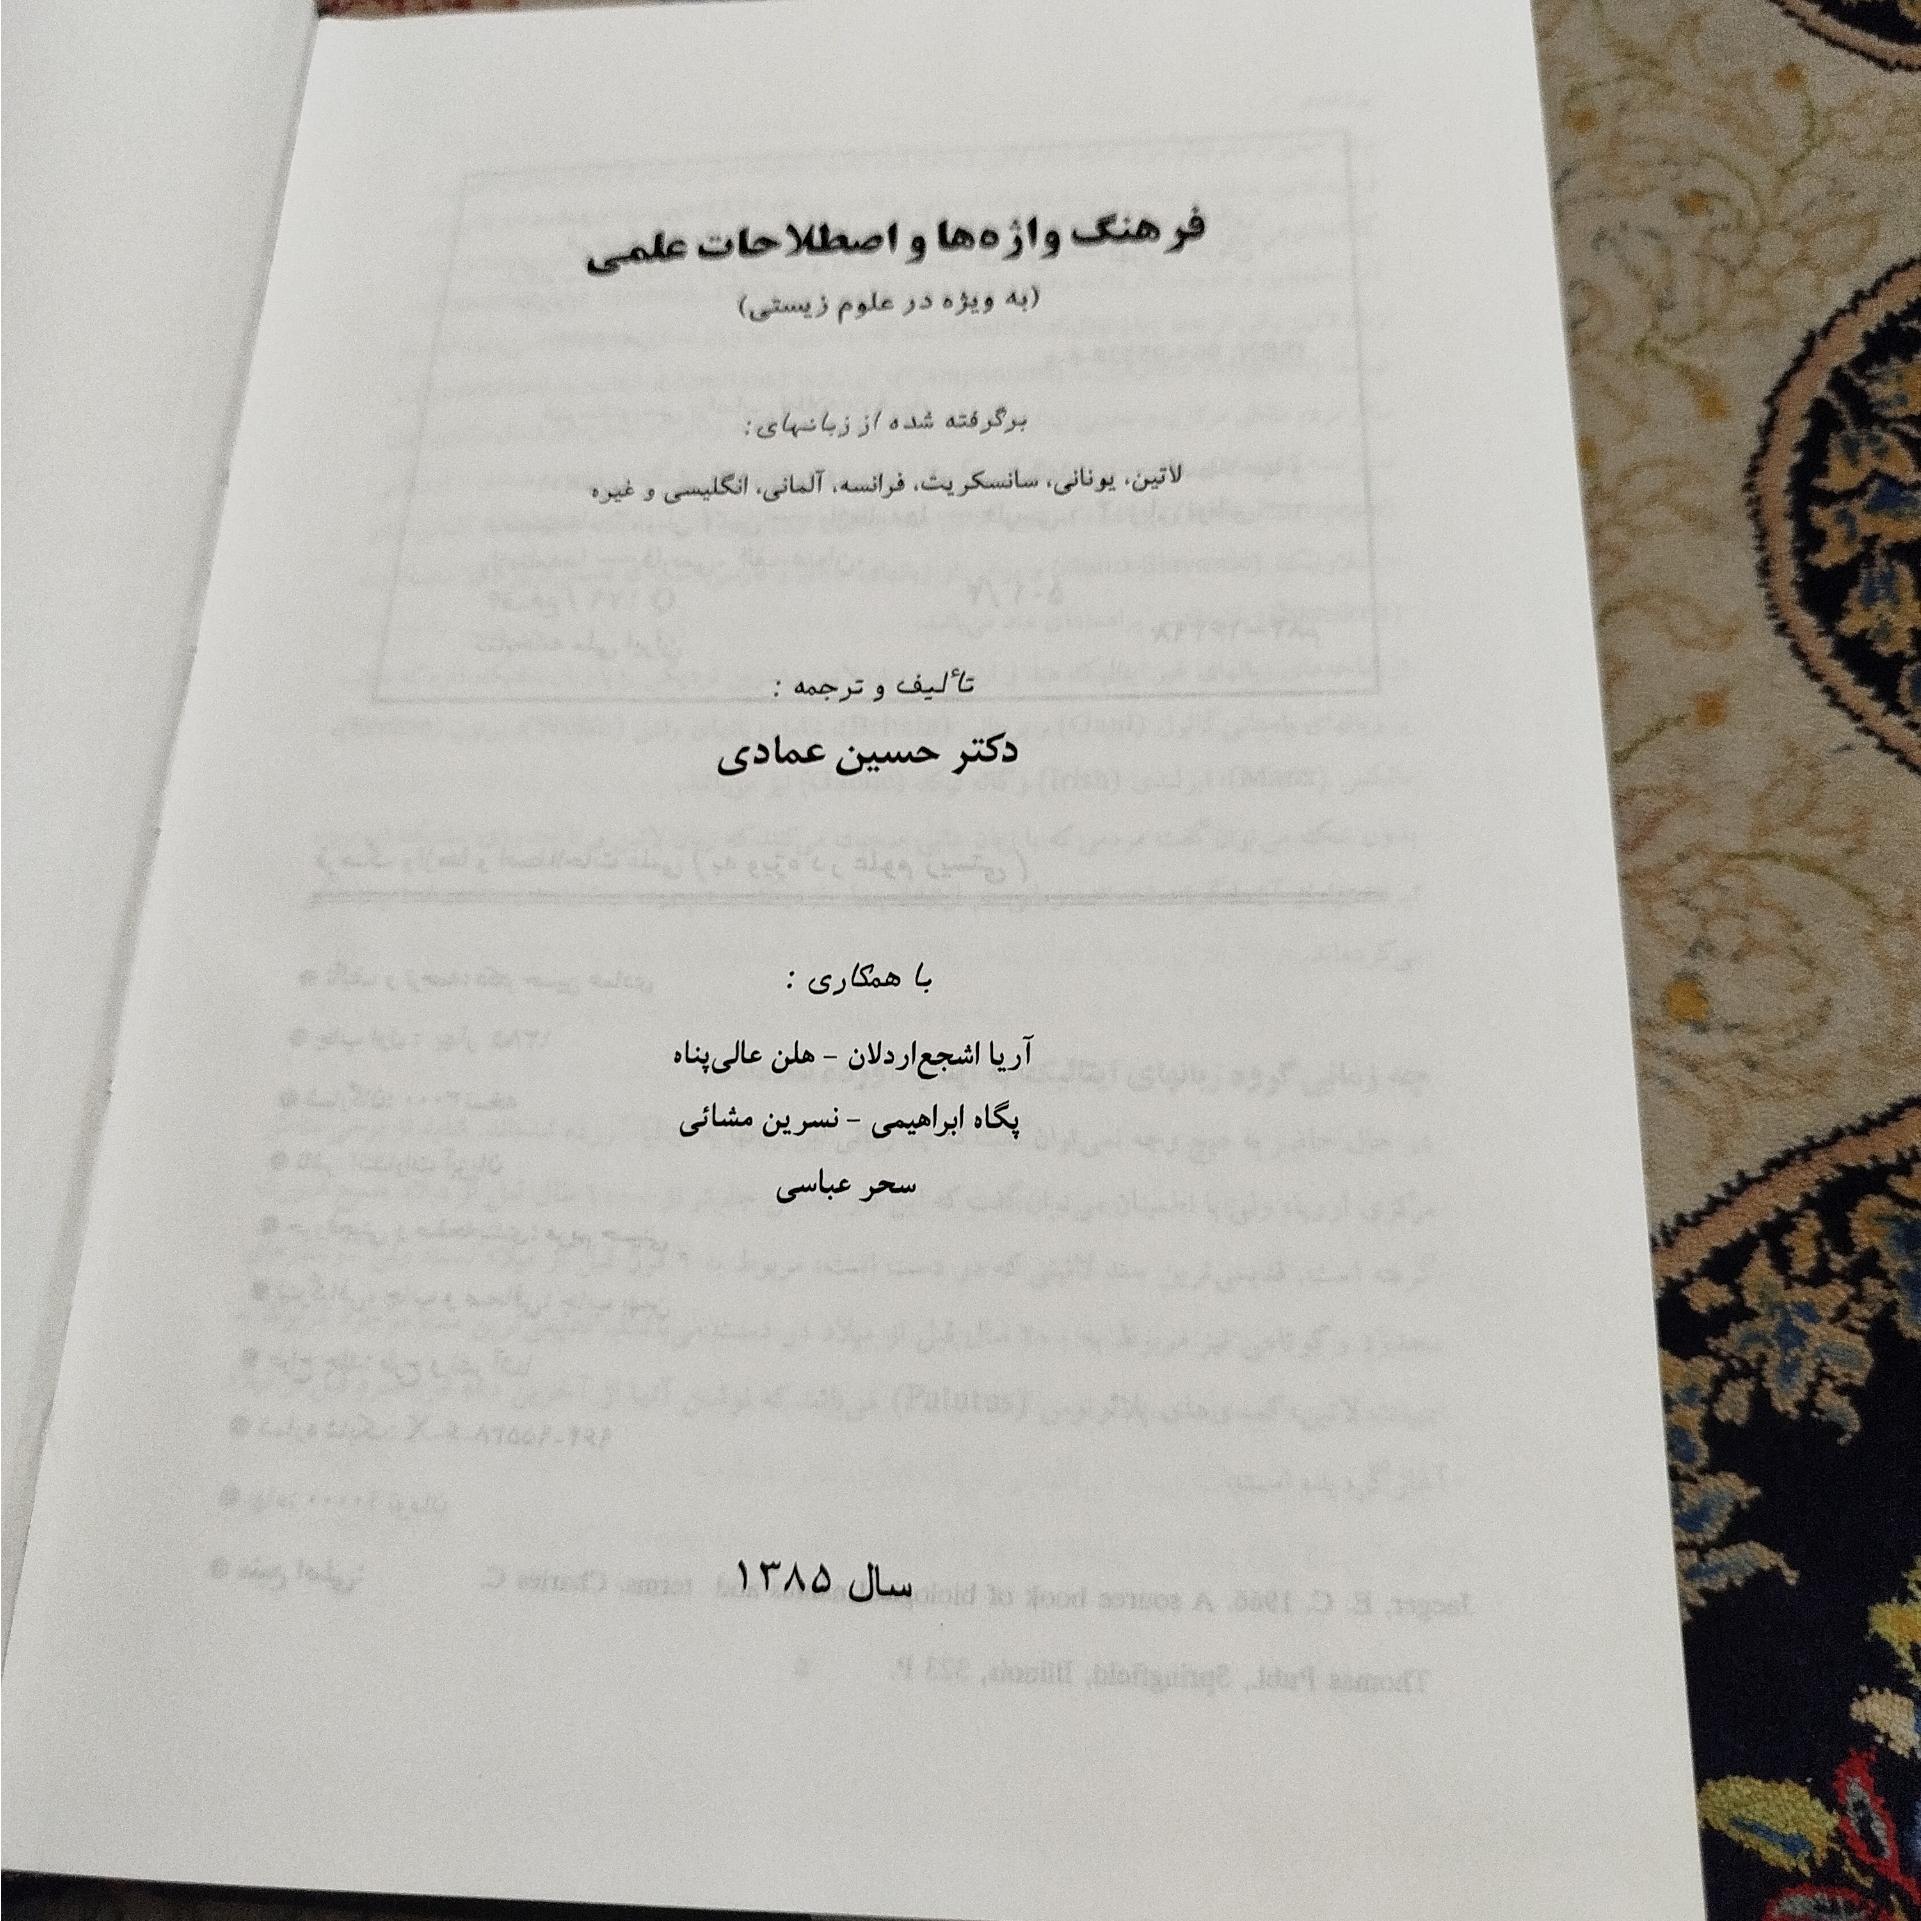 فرهنگ واژه‌ها و اصطلاحات علمی
(به ویژه در علوم زیستی)
برگرفته شده از زبانهای:
لاتین، یونانی، سانسکریت، فرانسه، آلمانی، انگلیسی و غیره
تألیف و ترجمه :
دکتر حسین عمادی
با همکاری :
آریا اشجع‌اردلان - هلن عالی‌پناه
پگاه ابراهیمی - نسرین مشائی
سحر عباسی
سال ۱۳۸۵